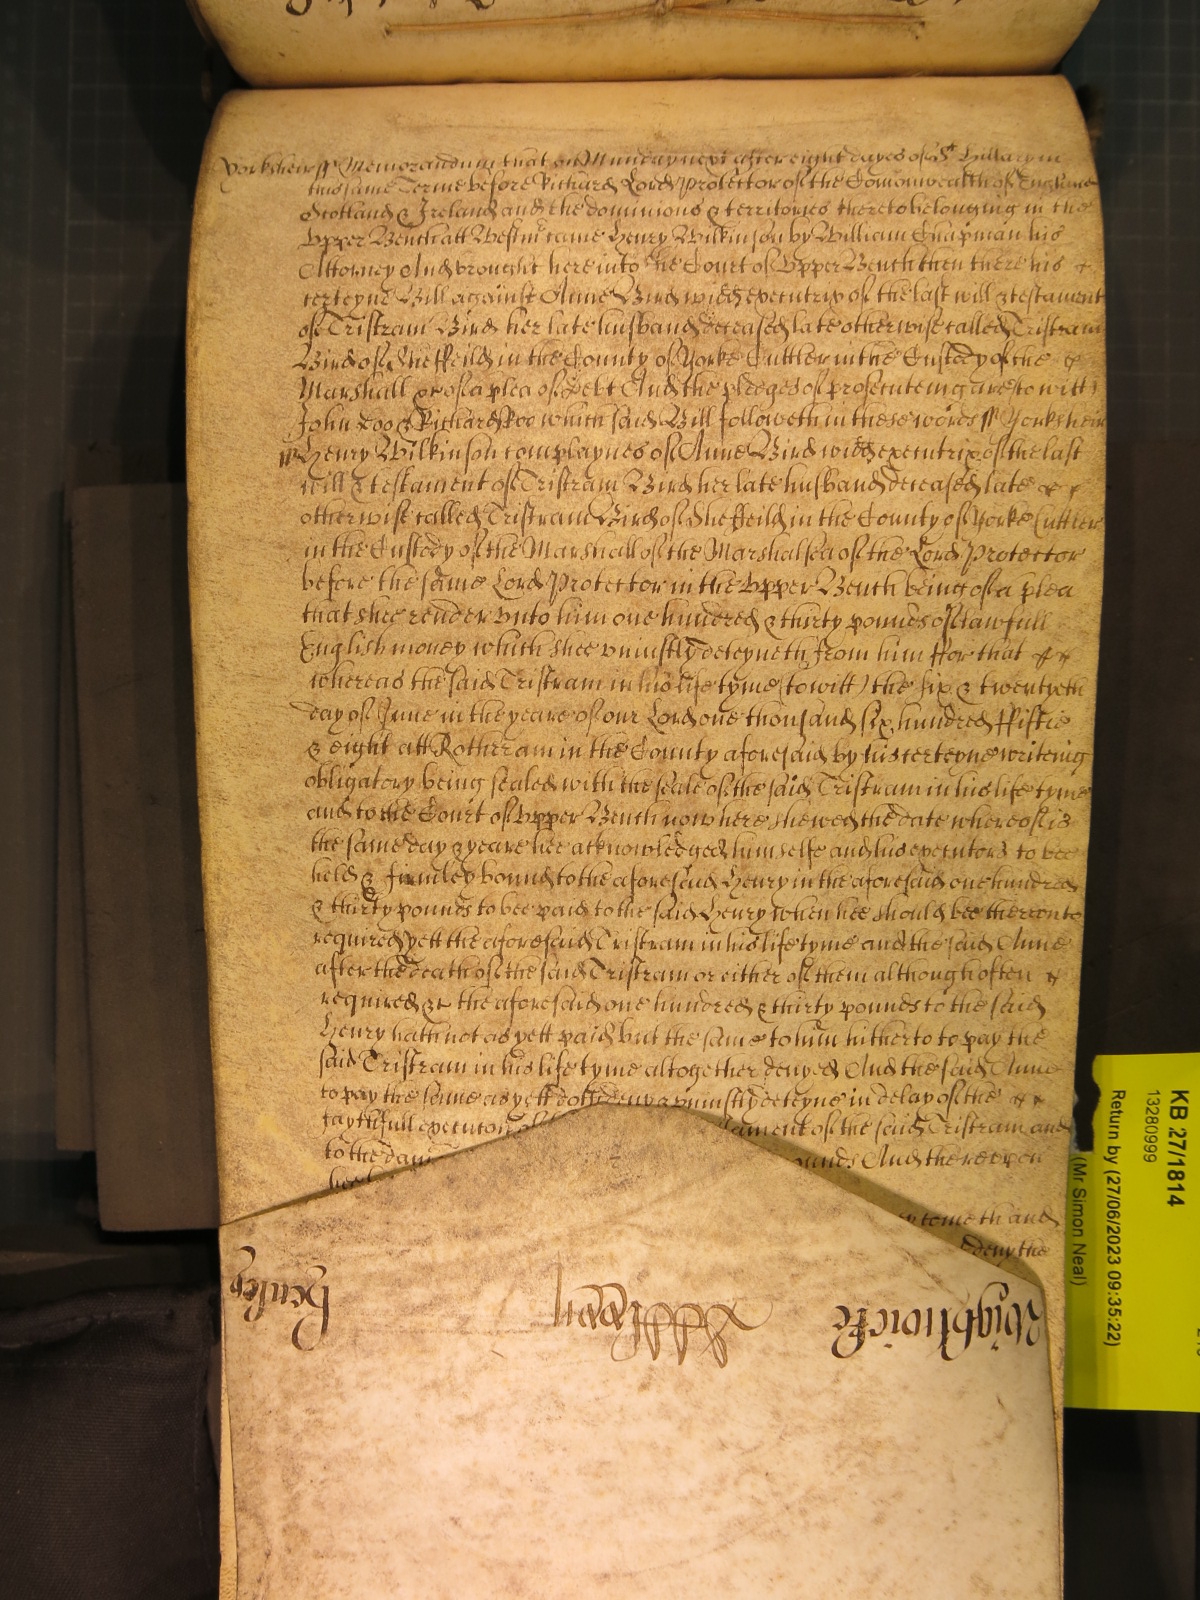 Yorksheir ss Memorandum that on Munday next after eight dayes of St Hillary in
this same Terme before Richard Lord Protector of the Comonwealth of England
Scotland & Ireland and the dominions & territories thereto belonging in the
Upper Bench att Westmr came Henry Wilkinson by William Chapman his
Attorney And brought here into the Court of Upper Bench then there his
certeyne Bill against Anne Bird widd executrix of the last will & testament
of Tristram Bird her late husband deceased late otherwise called Tristram
Bird of Sheffeild in the County of Yorke Cuttler in the Custody of the
Marshall &c of a plea of Debt And the pledges of prosecuteing are (to witt)
John Doo & Richard Roo which said Bill followeth in these words ss Yorksheir
ss Henry Wilkinson complaynes of Anne Bird widd executrix of the last
will & testament of Tristram Bird her late husband deceased late
otherwise called Tristram Bird of Sheffeild in the County of Yorke Cuttler
in the Custody of the Marshall of the Marshalsea of the Lord Protector
before the same Lord Protector in the Upper Bench being of a plea
that shee render vnto him one hundred & thirty pounds of lawfull
English money which shee vniustly deteyneth from him ffor that
whereas the said Tristram in his life tyme (to witt) the six & twentyeth
day of June in the yeare of our Lord one thousand six hundred ffiftie
& eight att Rotherram in the County aforesaid by his certeyne writeing
obligatory being sealed with the seale of the said Tristram in his life tyme
and to the Court of Upper Bench now here shewed the date whereof is
the same day & yeare hee acknowledged himselfe and his executors to bee
held & firmley bound to the aforesaid Henry in the aforesaid one hundred
& thirty pounds to bee paid to the said Henry when hee should bee therevnto
required yett the aforesaid Tristram in his life tyme and the said Anne
after the death of the said Tristram or either of them although often
required &c the aforesaid one hundred & thirty pounds to the said
Henry hath not as yett paid but the same to him hitherto to pay the
said Tristram in his life tyme altogether denyed And the said Anne
to pay the same as yett doth deny & vniustly deteyne in delay of the
faythfull execution of
testament of the said Tristram and
to the dam
pounds And therevpon
hee
cometh and
deny the
Wightwicke
Henley
KB 27/1814
13280999
Return by (27/06/2023 09:35:22)
(Mr Simon Neal)